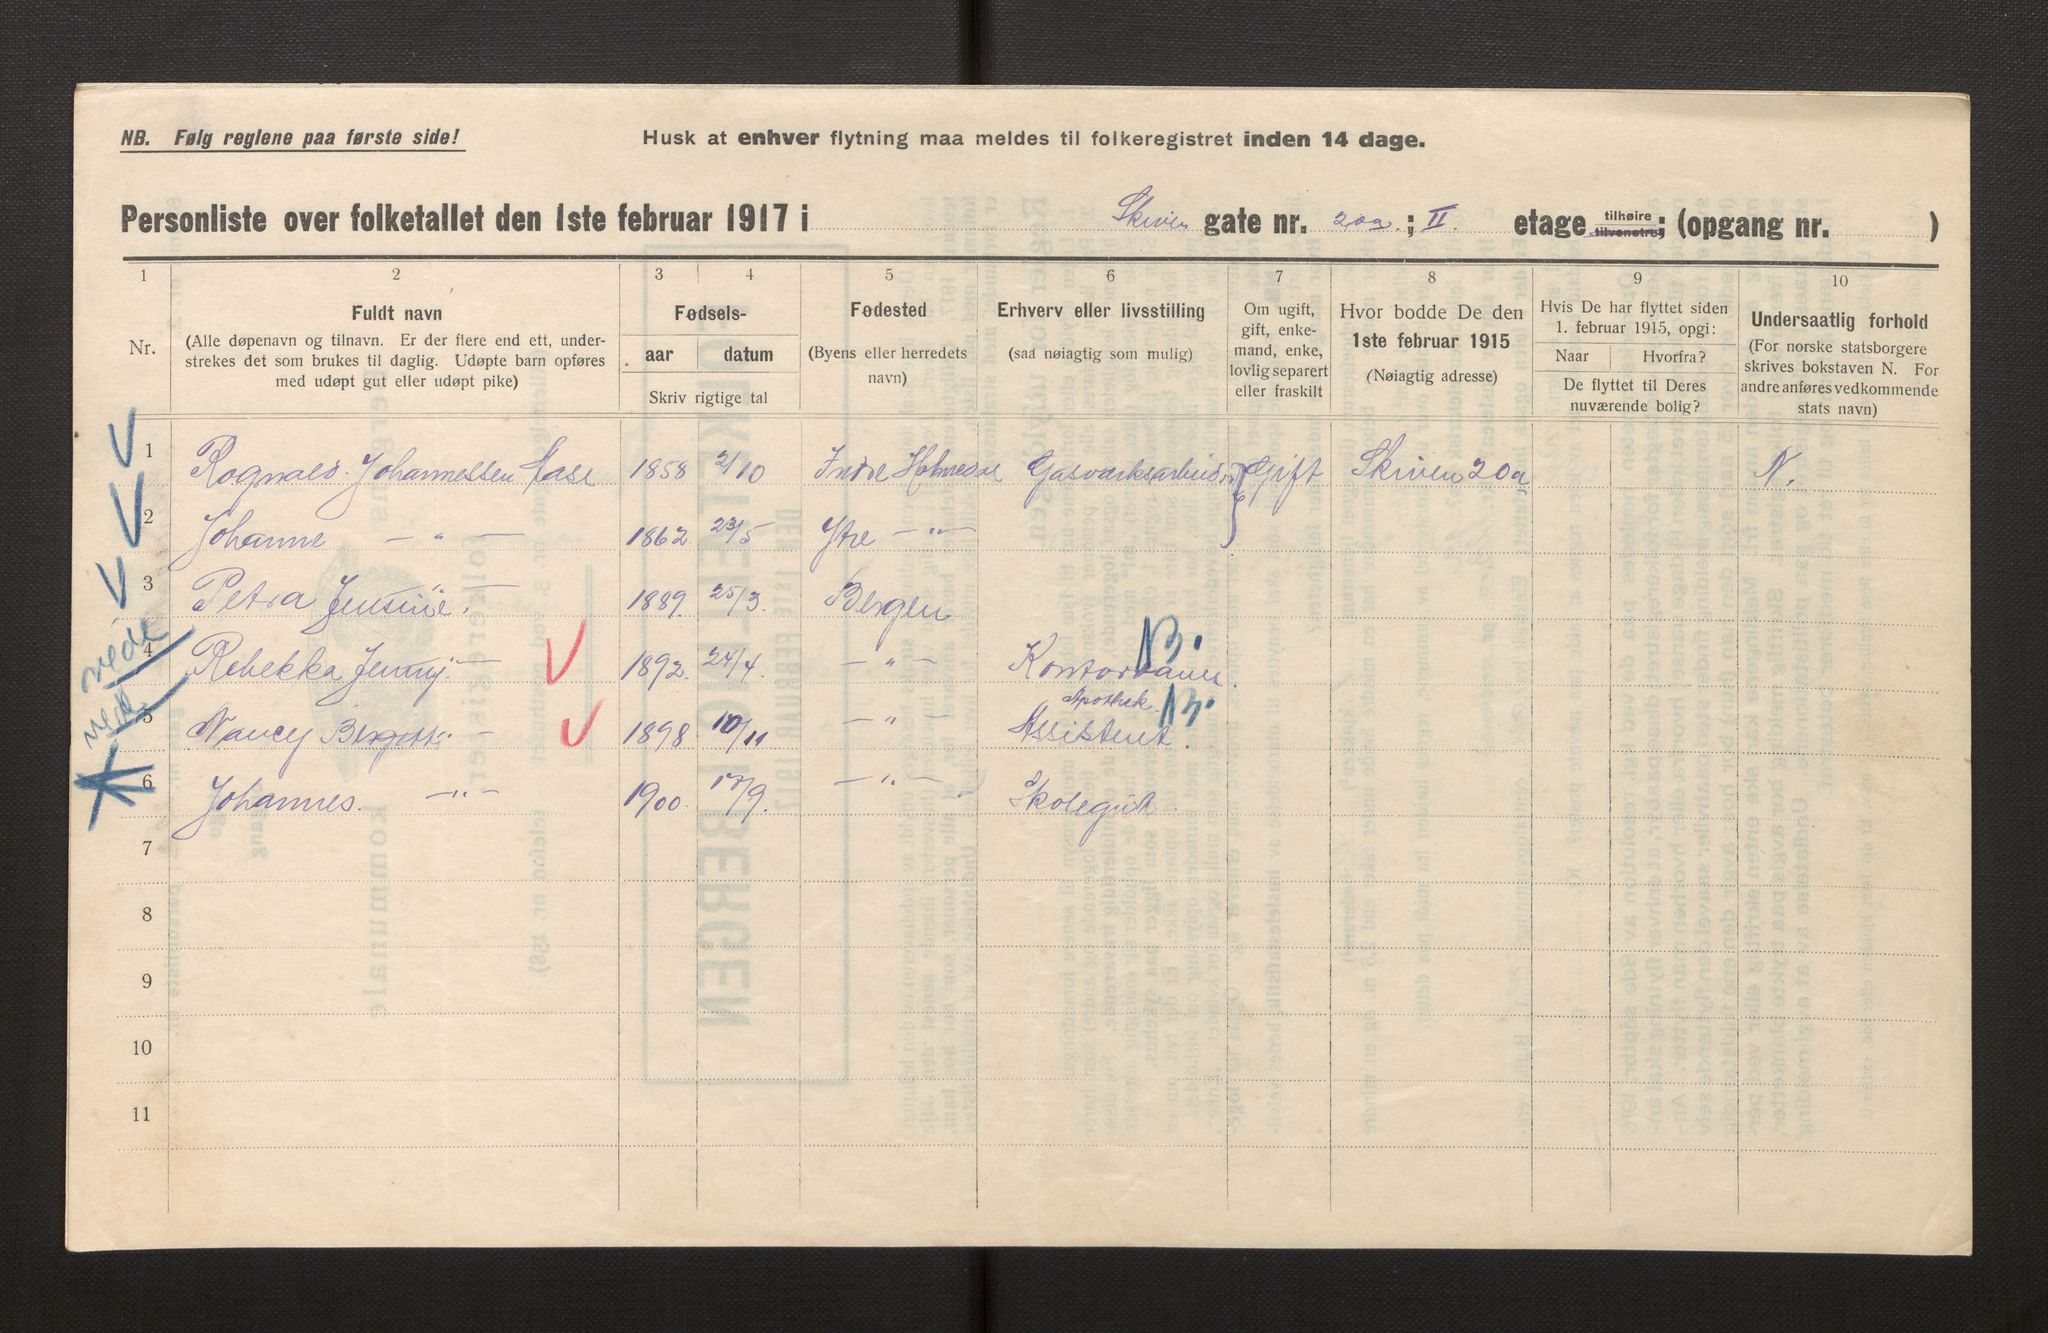 NB. Følg reglene paa første side!
Husk at enhver flytning maa meldes til folkeregistret inden 14 dage.
Personliste over folketallet den 1ste februar 1917 i Skiven gate nr. 20a.; II. etage tilhøire tilvenstre; (opgang nr. )
1 2 3 4 5 6 7 8 9 10
Nr.
Fuldt navn
(Alle døpenavn og tilnavn. Er der flere end ett, under-
strekes det som brukes til daglig. Udøpte barn opføres
med udøpt gut eller udøpt pike)
Fødsels-
aar datum
Skriv rigtige tal
Fødested
(Byens eller herredets
navn)
Erhverv eller livsstilling
(saa nøiagtig som mulig)
Om ugift,
gift, enke-
mand, enke,
lovlig separert
eller fraskilt
Hvor bodde De den
1ste februar 1915
(Nøiagtig adresse)
Hvis De har flyttet siden
1. februar 1915, opgi:
Naar Hvorfra?
De flyttet til Deres
nuværende bolig?
Undersaatlig forhold
(For norske statsborgere
skrives bokstaven N. For
andre anføres vedkommende
stats navn)
1 Rognald Johannessen Hase 1858 2/10 Indre Holmedal Gasværksarbeider Gift Skiven 20a N.
2 Johanne — " — 1862 23/5 Ytre — " —
3 Petra Jensine " — 1889 25/3 Bergen
vede 4 Rebekka Jenny — 1892 24/4 — " — Kontordame. B.
vede 5 Nancy Bergitte — 1898 10/11 — " — Apothek B.
Assistent.
6 Johannes. — " — 1900 17/9. — " — Skolegut.
7
8
9
10
11